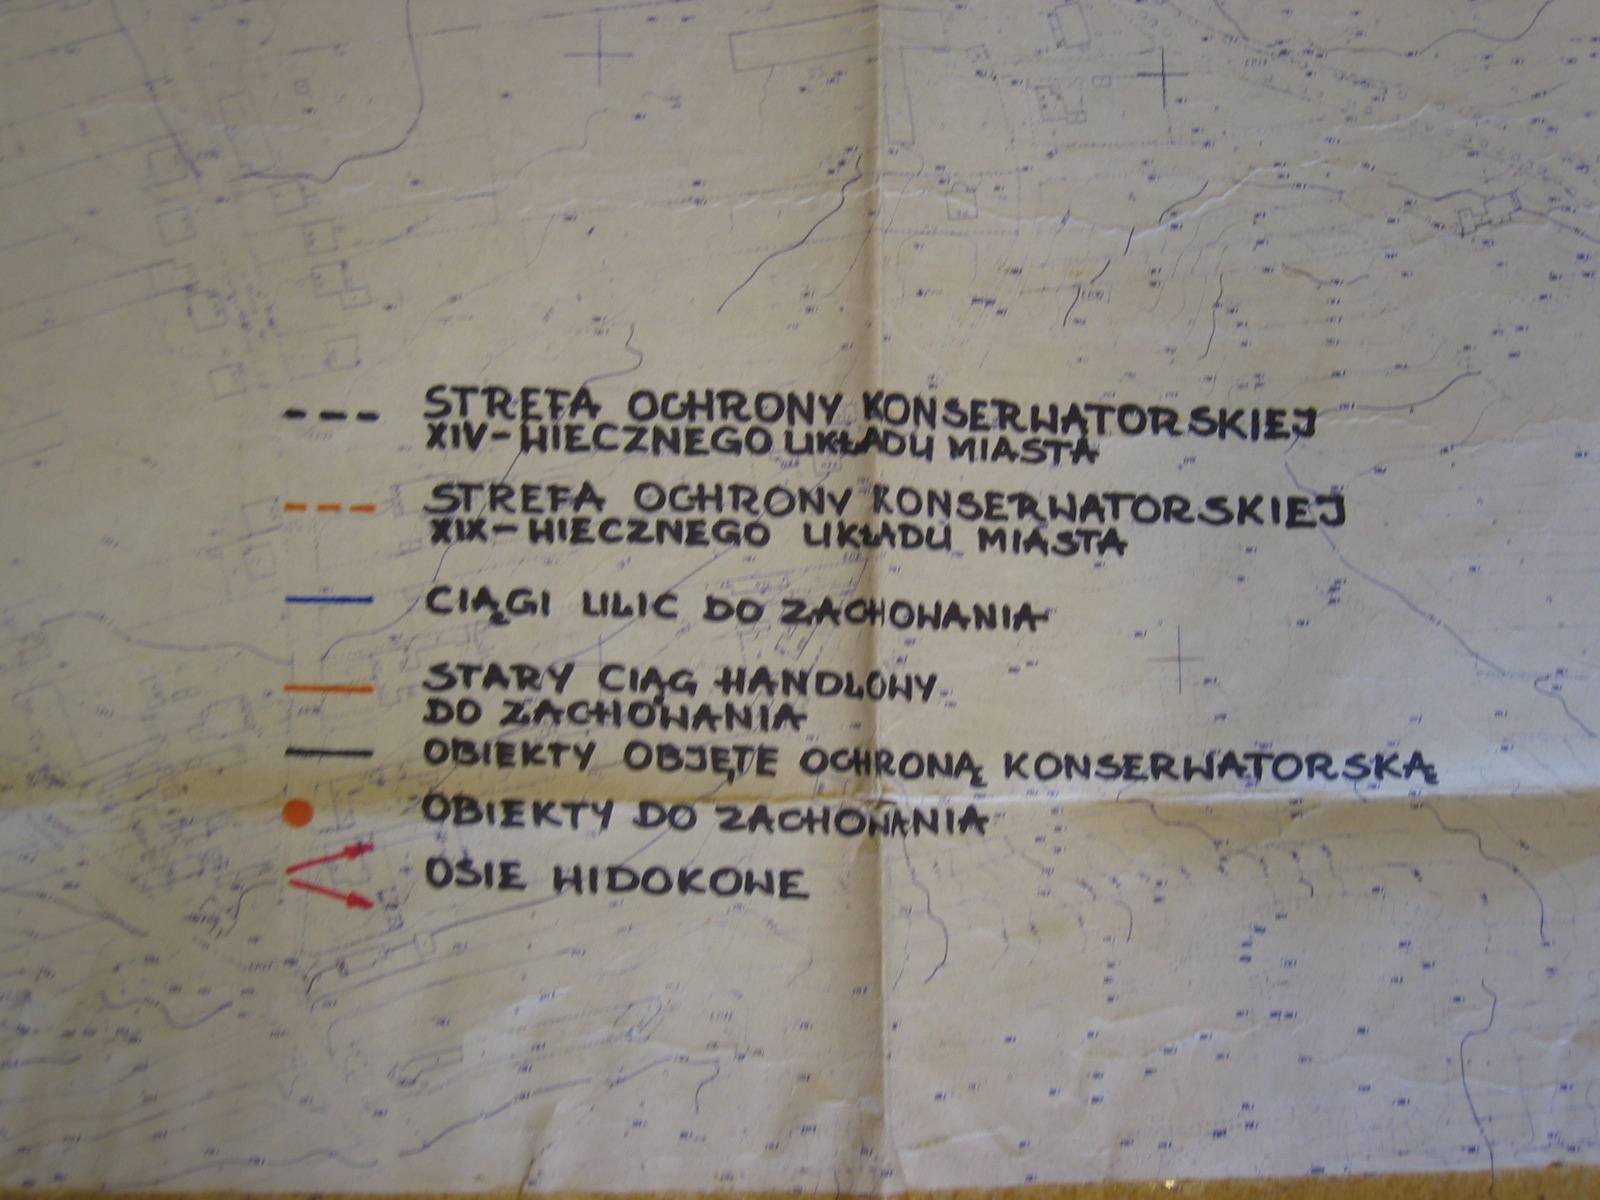 STREFA OCHRONY KONSERWATORSKIEJ
XIV-WIECZNEGO UKŁADU MIASTA
STREFA OCHRONY KONSERWATORSKIEJ
XIX-WIECZNEGO UKŁADU MIASTA
CIĄGI ULIC DO ZACHOWANIA
STARY CIĄG HANDLOWY
DO ZACHOWANIA
OBIEKTY OBJĘTE OCHRONĄ KONSERWATORSKĄ
OBIEKTY DO ZACHOWANIA
OSIE WIDOKOWE